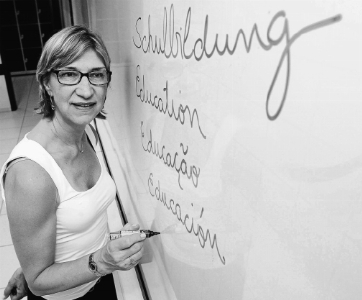 Schulbildung
Education
Educação
Educación